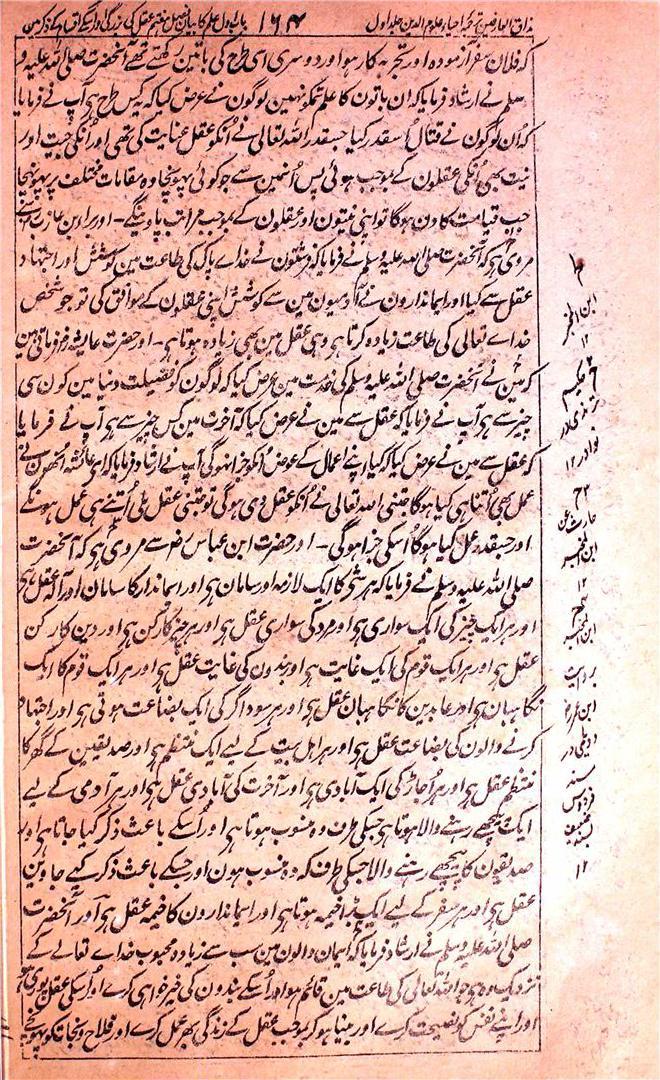 مذاق العارفین ترجمۂ احیاء علوم الدین جلد اول ۱۶۴ باب اول علم کا بیان فصل ہفتم عقل کی بزرگی اور اسکے اقسام کے ذکر مین
کہ فلان سفر آزمودہ اور تجربہ کار ہو اور دوسری اسی طرح کی باتین رکھتے تھے آنحضرت صلی اللہ علیہ و
سلم نے ارشاد فرمایا کہ ان باتون کا علم تمکو نہین لوگون نے عرض کیا کہ کس طرح ہی آپ نے فرمایا
کہ ان لوگون نے قتال اُسقدر کیا جسقدر اللہ تعالیٰ نے اُنکو عقل عنایت کی تھی اور اُنکی جیت اور
نیت بھی اُنکی عقلون کے بموجب ہوئی پس اُنمین سے جو کوئی پہونچا وہ مقامات مختلف پر پہونچا
جب قیامت کا دن ہوگا تو اپنی نیتون اور عقلون کے بموجب مراتب پاوینگے ۔ اور براء ابن عازب سے
مروی ہی کہ آنحضرت صلی اللہ علیہ وسلم نے فرمایا کہ فرشتون نے خداے پاک کی طاعت مین کوشش اور اجتہاد
عقل سے کیا اور ایماندارون نے آدمیون مین سے کوشش اپنی عقلون کے موافق کی تو جو شخص
خداے تعالی کی طاعت زیادہ کرتا ہی وہی عقل مین بھی زیادہ ہوتا ہی ۔ اور حضرت عایشہ رض فرماتی ہین
کہ مین نے آنحضرت صلی اللہ علیہ وسلم کی خدمت مین عرض کیا کہ لوگون کو فضیلت دنیا مین کون سی
چیز سے ہی آپ نے فرمایا کہ عقل سے مین نے عرض کیا کہ آخرت مین کس چیز سے ہی آپ نے فرمایا
کہ عقل سے مین نے عرض کیا کہ کیا اپنے اعمال کے عوض اُنکو جزا نہوگی آپ نے ارشاد فرمایا کہ ای عائشہ اُنھون نے
عمل بھی اُتنا ہی کیا ہوگا جتنی اللہ تعالی نے اُنکو عقل دی ہوگی تو جتنی عقل ملی اُتنے ہی عمل ہونگے
اور جسقدر عمل کیا ہوگا اُسکی جزا ہوگی ۔ اور حضرت ابن عباس رض سے مروی ہی کہ آنحضرت
صلی اللہ علیہ وسلم نے فرمایا کہ ہر شی کا ایک لازمہ اور سامان ہی اور ایماندار کا سامان اور آلہ عقل ہی
اور ہر ایک چیز کی ایک سواری ہی اور مرد کی سواری عقل ہی اور ہر چیز کا رکن ہی اور دین کا رکن
عقل ہی اور ہر ایک قوم کی ایک غایت ہی اور بندون کی غایت عقل ہی اور ہر ایک قوم کا ایک
نگاہبان ہی اور عابدین کا نگاہبان عقل ہی اور ہر سوداگر کی ایک بضاعت ہوتی ہی اور اجتہاد
کرنے والون کی بضاعت عقل ہی اور ہر اہل بیت کے لیے ایک منتظم ہی اور صدیقین کے گھر کا
منتظم عقل ہی اور ہر اُجاڑ کی ایک آبادی ہی اور آخرت کی آبادی عقل ہی اور ہر آدمی کے لیے
ایک پیچھے رہنے والا ہوتا ہی جسکی طرف وہ منسوب ہوتا ہی اور اُسکے باعث ذکر کیا جاتا ہی اور
صدیقون کا پیچھے رہنے والا جسکی طرف کہ وہ منسوب ہون اور جسکے باعث ذکر کیے جاوین
عقل ہی اور ہر سفر کے لیے ایک بڑا خیمہ ہوتا ہی اور ایماندارون کا خیمہ عقل ہی اور آنحضرت
صلی اللہ علیہ وسلم نے ارشاد فرمایا کہ ایمان والون مین سب سے زیادہ محبوب خداے تعالے کے
نزدیک وہ ہی جو اللہ تعالی کی طاعت مین قائم ہو اور اُسکے بندون کی خیر خواہی کرے اور اُسکی عقل پوری ہو
اور اپنے نفس کو نصیحت کرے اور بینا ہو کر بموجب عقل کے زندگی بھر عمل کرے اور فلاح و نجات کو پہونچے
ابن المحبر
۱۲
حکیم
ترمذی در
نوادر ۱۲
حارث عن
ابن المحبر
۱۲
ابن المحبر
بروایت
ابن عمر رض
و دیلمی در
مسند
فردوس
۱۲